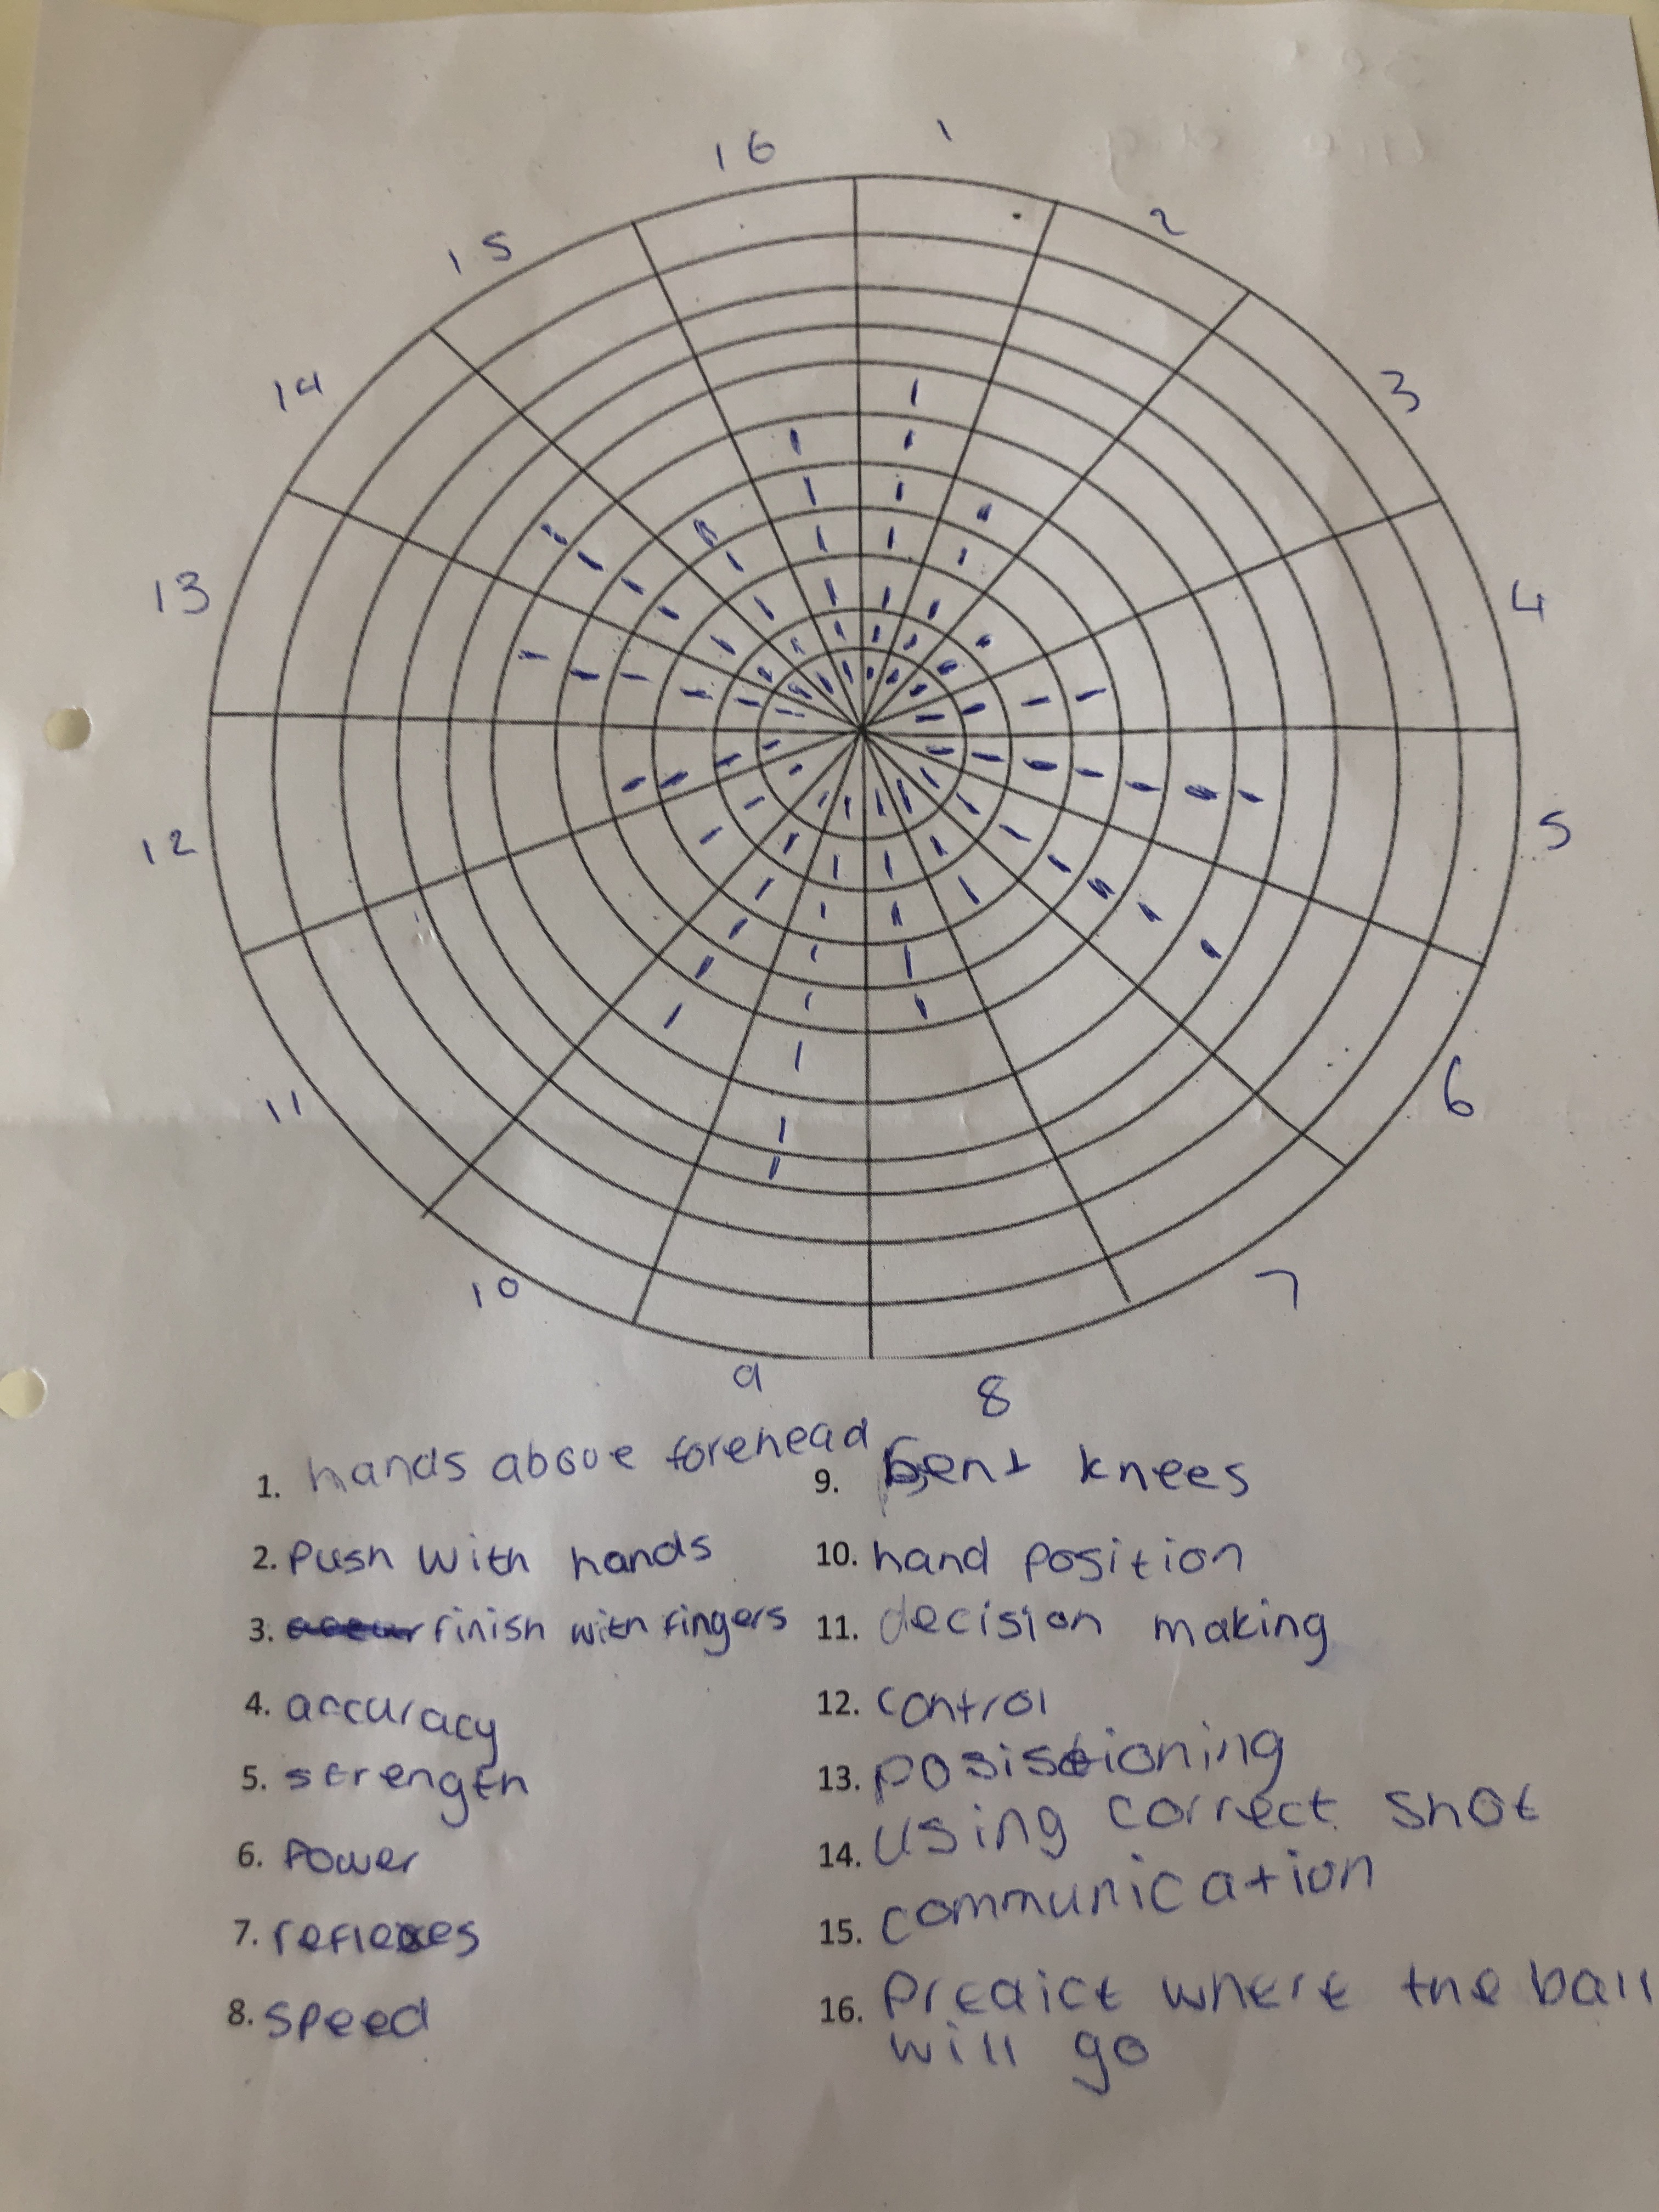 16 1
15 2
14 3
13 4
12 5
11 6
10 7
9 8
1. hands above forehead
2. Push with hands
3. finish with fingers
4. accuracy
5. strength
6. Power
7. reflexes
8. speed
9. Bent knees
10. hand position
11. decision making
12. control
13. posistioning
14. using correct shot
15. communication
16. Predict where the ball
will go